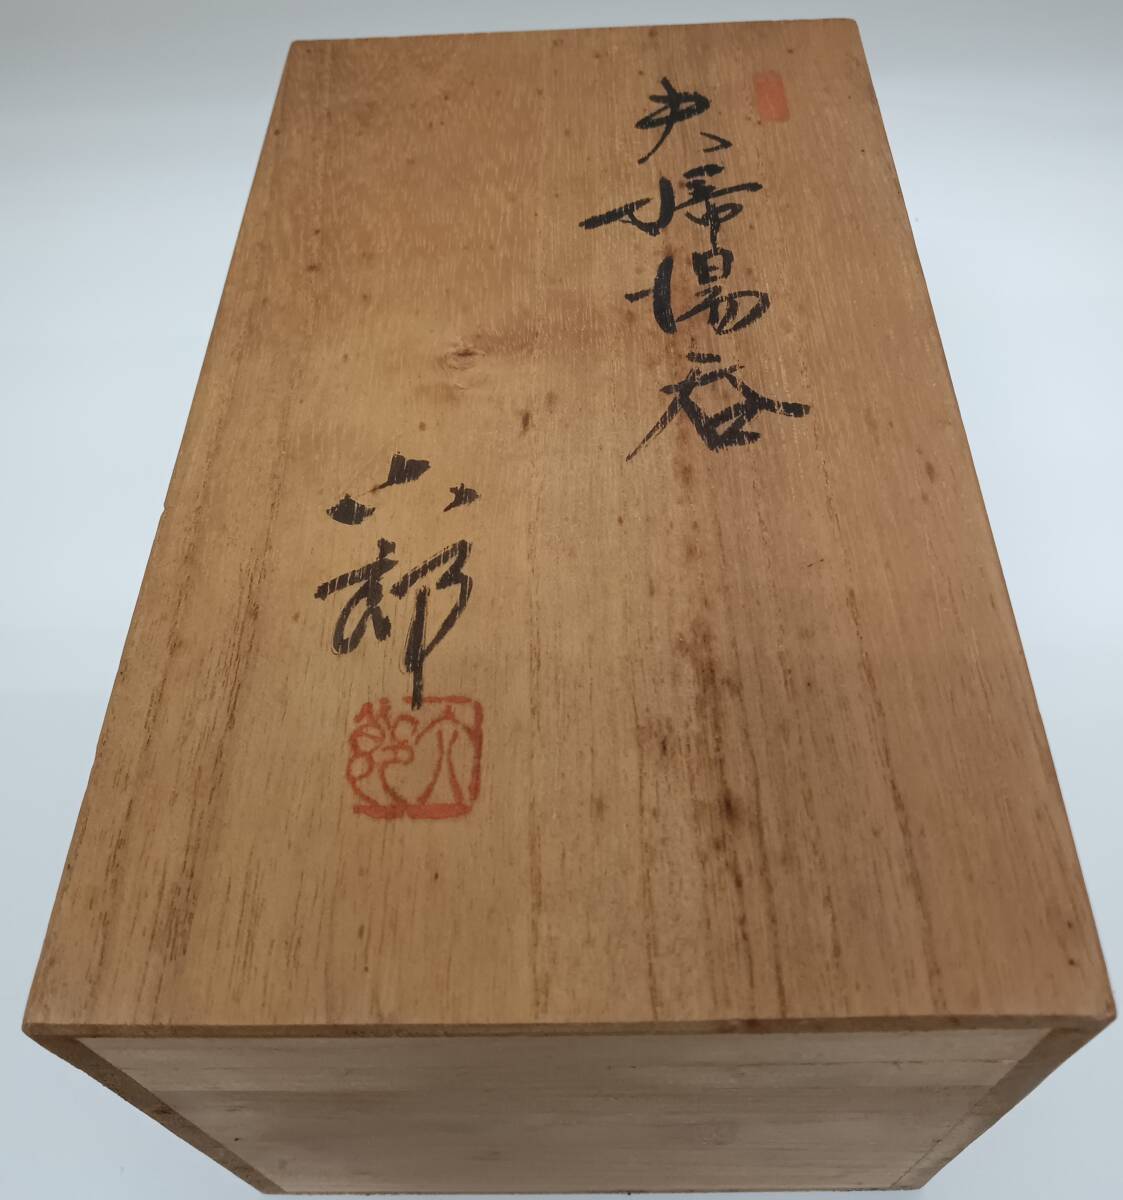 夫婦湯呑
六郎